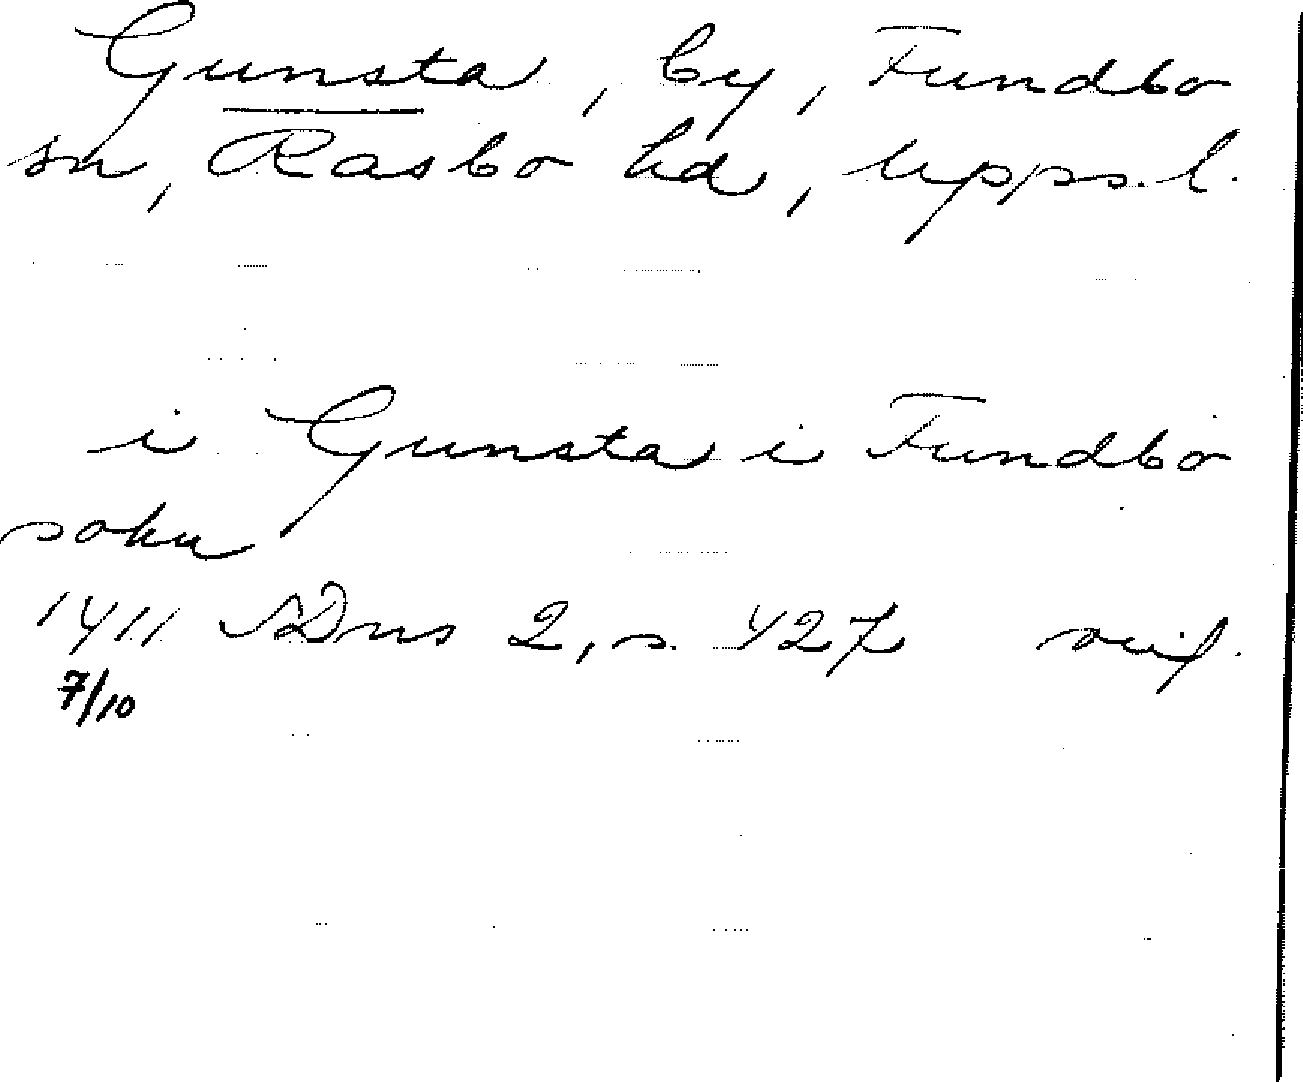 Gunsta, by, Fundbo
sn, Rasbo hd, Upps. l.
i Gunsta i Fundbo
sokn
1411 SDns 2, s. 427 avf.
7/10